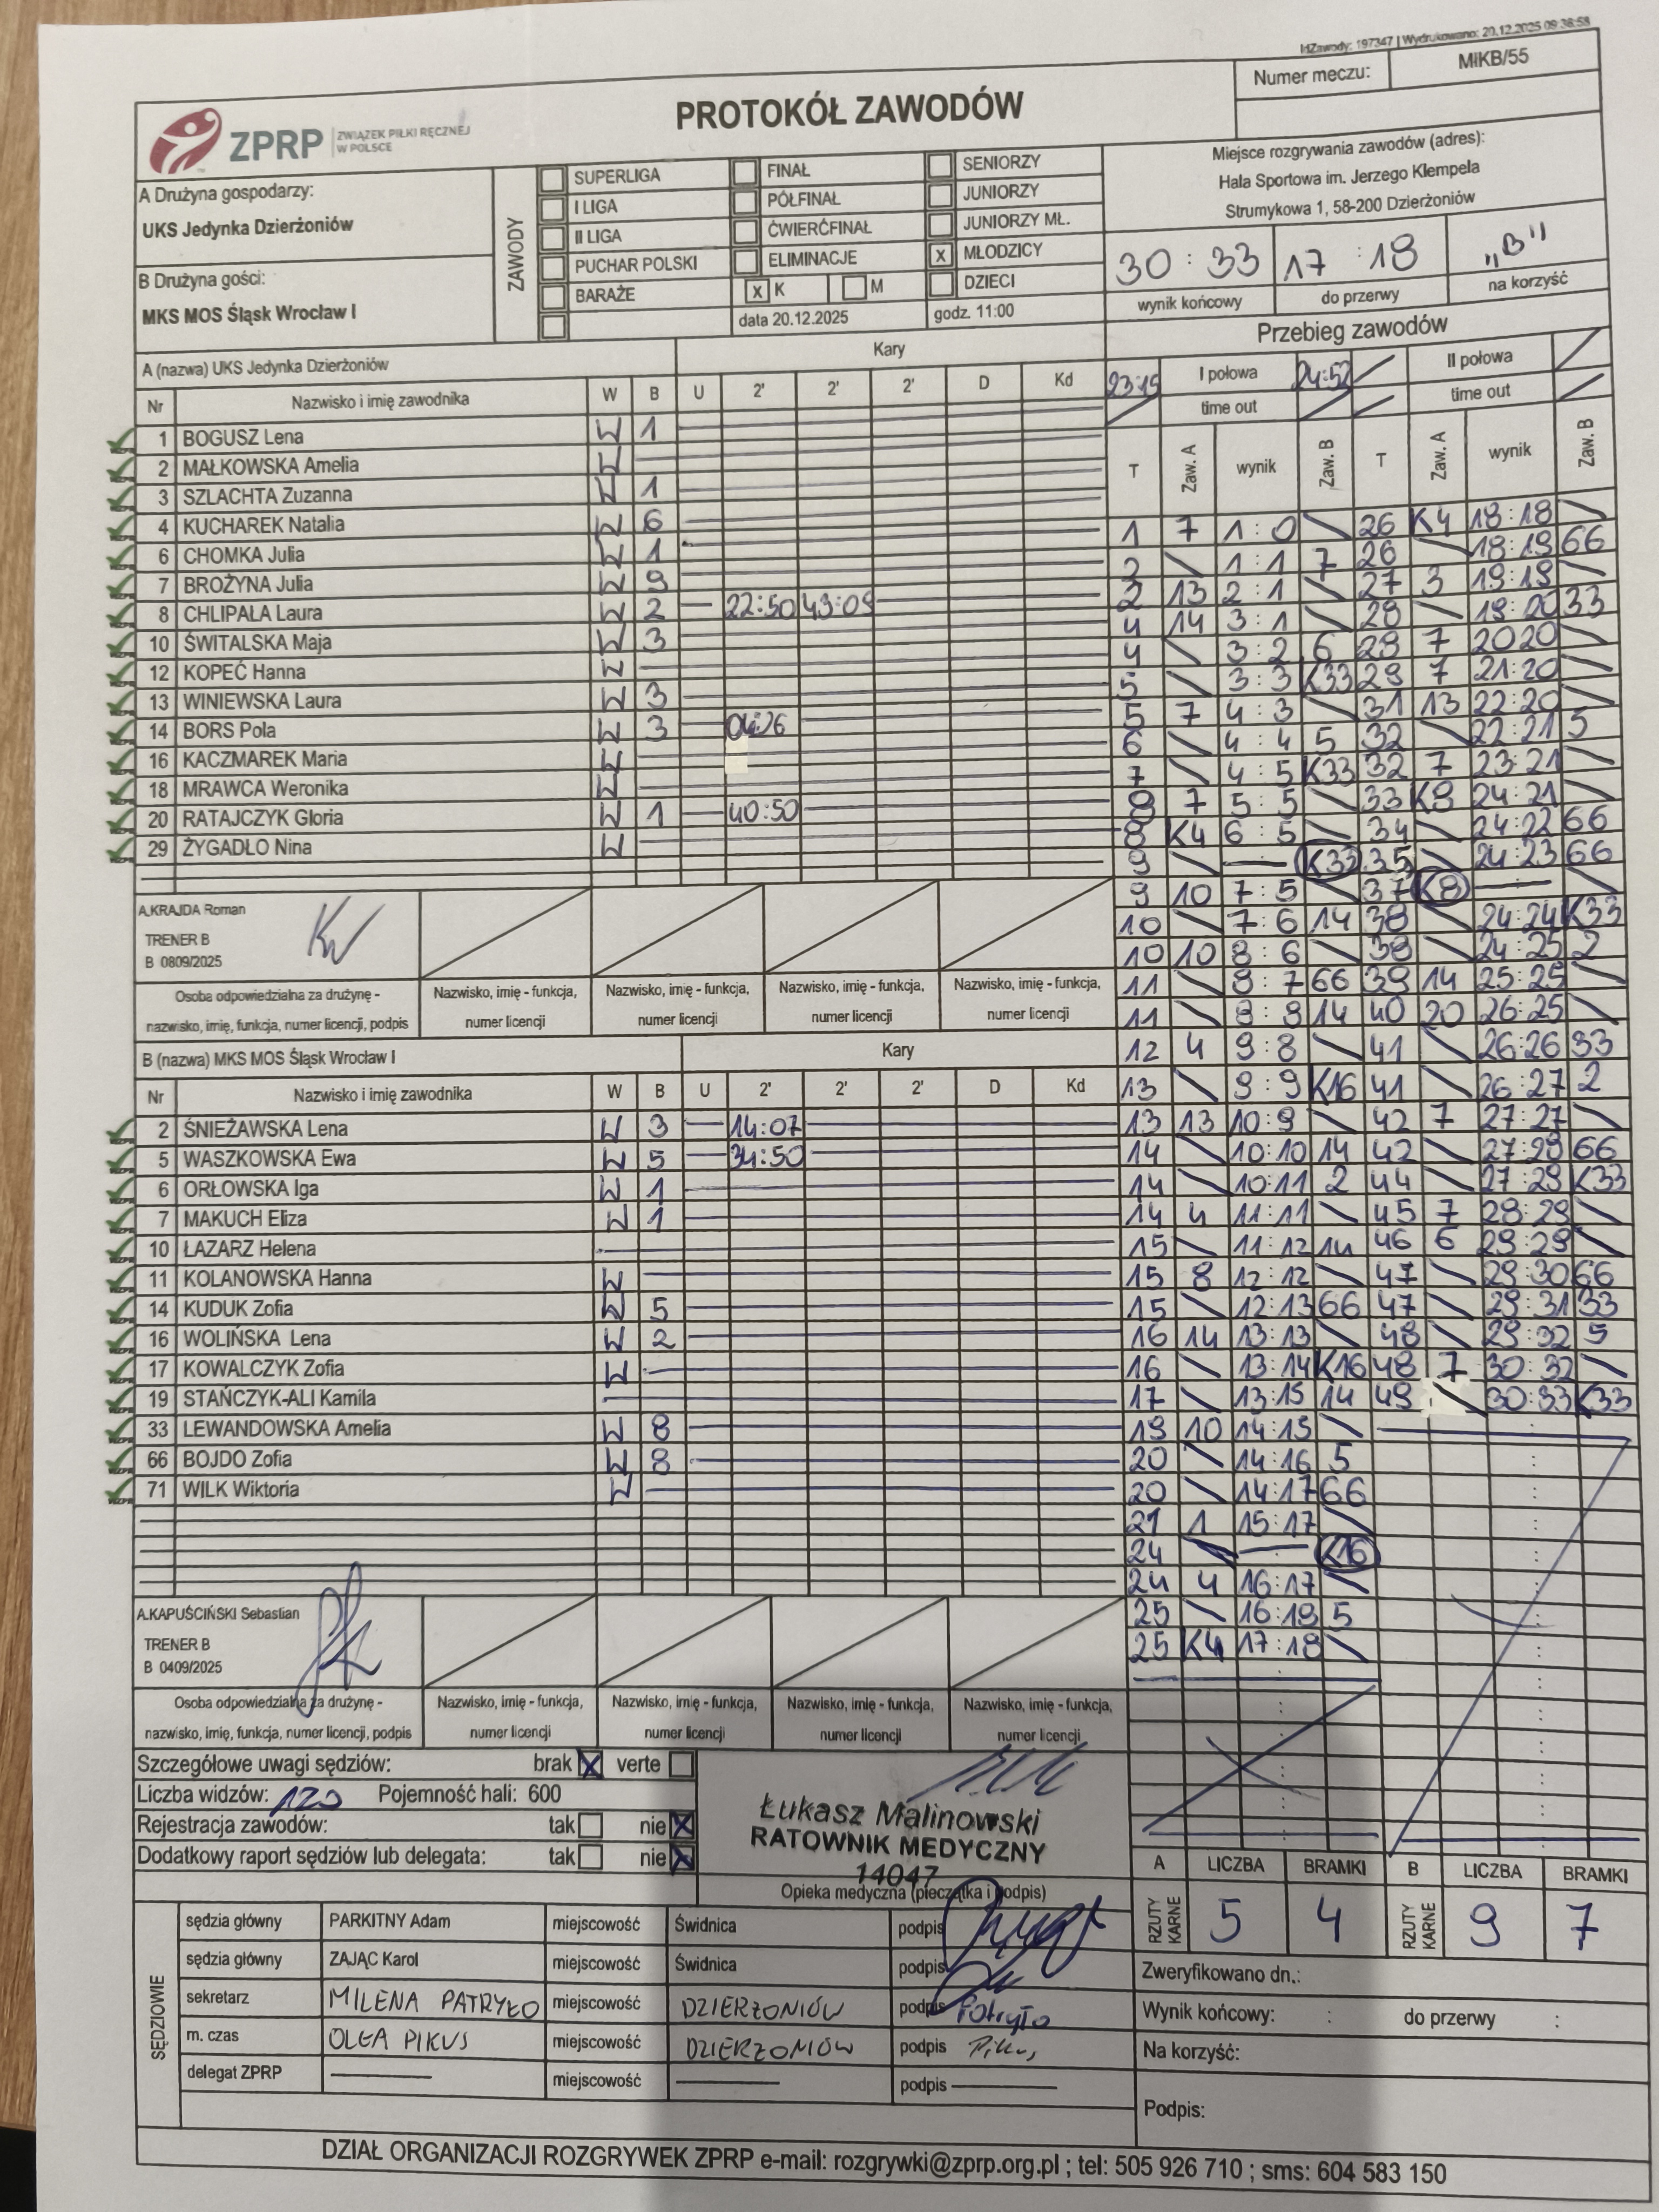 IdZawody: 197347 | Wydrukowano: 20.12.2025 09:36:58
Numer meczu: MłKB/55
ZPRP ZWIĄZEK PIŁKI RĘCZNEJ W POLSCE
PROTOKÓŁ ZAWODÓW
A Drużyna gospodarzy:
UKS Jedynka Dzierżoniów
B Drużyna gości:
MKS MOS Śląsk Wrocław I
ZAWODY
SUPERLIGA
I LIGA
II LIGA
PUCHAR POLSKI
BARAŻE
FINAŁ
PÓŁFINAŁ
ĆWIERĆFINAŁ
ELIMINACJE
x K M
data 20.12.2025
SENIORZY
JUNIORZY
JUNIORZY MŁ.
x MŁODZICY
DZIECI
godz. 11:00
Miejsce rozgrywania zawodów (adres):
Hala Sportowa im. Jerzego Klempela
Strumykowa 1, 58-200 Dzierżoniów
30 : 33 17 : 18 „B"
wynik końcowy do przerwy na korzyść
A (nazwa) UKS Jedynka Dzierżoniów Kary
Nr Nazwisko i imię zawodnika W B U 2' 2' 2' D Kd
1 BOGUSZ Lena W 1
2 MAŁKOWSKA Amelia W
3 SZLACHTA Zuzanna W 1
4 KUCHAREK Natalia W 6
6 CHOMKA Julia W 1
7 BROŻYNA Julia W 9
8 CHLIPALA Laura W 2 22:50 43:09
10 ŚWITALSKA Maja W 3
12 KOPEĆ Hanna W
13 WINIEWSKA Laura W 3
14 BORS Pola W 3 04:26
16 KACZMAREK Maria W
18 MRAWCA Weronika W
20 RATAJCZYK Gloria W 1 40:50
29 ŻYGADŁO Nina W
A.KRAJDA Roman
TRENER B
B 0809/2025
Osoba odpowiedzialna za drużynę -
nazwisko, imię, funkcja, numer licencji, podpis
Nazwisko, imię - funkcja, numer licencji
Nazwisko, imię - funkcja, numer licencji
Nazwisko, imię - funkcja, numer licencji
Nazwisko, imię - funkcja, numer licencji
B (nazwa) MKS MOS Śląsk Wrocław I Kary
Nr Nazwisko i imię zawodnika W B U 2' 2' 2' D Kd
2 ŚNIEŻAWSKA Lena W 3 14:07
5 WASZKOWSKA Ewa W 5 34:50
6 ORŁOWSKA Iga W 1
7 MAKUCH Eliza W 1
10 ŁAZARZ Helena
11 KOLANOWSKA Hanna W
14 KUDUK Zofia W 5
16 WOLIŃSKA Lena W 2
17 KOWALCZYK Zofia W
19 STAŃCZYK-ALI Kamila
33 LEWANDOWSKA Amelia W 8
66 BOJDO Zofia W 8
71 WILK Wiktoria W
A.KAPUŚCIŃSKI Sebastian
TRENER B
B 0409/2025
Osoba odpowiedzialna za drużynę -
nazwisko, imię, funkcja, numer licencji, podpis
Nazwisko, imię - funkcja, numer licencji
Nazwisko, imię - funkcja, numer licencji
Nazwisko, imię - funkcja, numer licencji
Nazwisko, imię - funkcja, numer licencji
Przebieg zawodów
23:15 I połowa 24:52 II połowa
time out time out
T Zaw. A wynik Zaw. B T Zaw. A wynik Zaw. B
1 7 1:0 26 K4 18:18
2 1:1 7 26 18:19 66
2 13 2:1 27 3 19:19
4 14 3:1 28 19:20 33
4 3:2 6 28 7 20:20
5 3:3 K33 29 7 21:20
5 7 4:3 31 13 22:20
6 4:4 5 32 22:21 5
7 4:5 K33 32 7 23:21
8 7 5:5 33 K8 24:21
8 K4 6:5 34 24:22 66
9 K33 35 24:23 66
9 10 7:5 37 K8
10 7:6 14 38 24:24 K33
10 10 8:6 38 24:25 2
11 8:7 66 39 14 25:25
11 8:8 14 40 20 26:25
12 4 9:8 41 26:26 33
13 9:9 K16 41 26:27 2
13 13 10:9 42 7 27:27
14 10:10 14 42 27:28 66
14 10:11 2 44 27:29 K33
14 4 11:11 45 7 28:29
15 11:12 14 46 6 29:29
15 8 12:12 47 29:30 66
15 12:13 66 47 29:31 33
16 14 13:13 48 29:32 5
16 13:14 K16 48 7 30:32
17 13:15 14 49 30:33 K33
19 10 14:15
20 14:16 5
20 14:17 66
21 1 15:17
24 K16
24 4 16:17
25 16:18 5
25 K4 17:18
Szczegółowe uwagi sędziów: brak X verte
Liczba widzów: 120 Pojemność hali: 600
Rejestracja zawodów: tak nie X
Dodatkowy raport sędziów lub delegata: tak nie X
Łukasz Malinowski
RATOWNIK MEDYCZNY
14047
Opieka medyczna (pieczątka i podpis)
A LICZBA BRAMKI B LICZBA BRAMKI
RZUTY KARNE 5 4 RZUTY KARNE 9 7
SĘDZIOWIE
sędzia główny PARKITNY Adam miejscowość Świdnica podpis
sędzia główny ZAJĄC Karol miejscowość Świdnica podpis
sekretarz MILENA PATRYŁO miejscowość DZIERŻONIÓW podpis Patryło
m. czas OLGA PIKUS miejscowość DZIERŻONIÓW podpis Pikus
delegat ZPRP miejscowość podpis
Zweryfikowano dn.:
Wynik końcowy: : do przerwy :
Na korzyść:
Podpis:
DZIAŁ ORGANIZACJI ROZGRYWEK ZPRP e-mail: rozgrywki@zprp.org.pl ; tel: 505 926 710 ; sms: 604 583 150